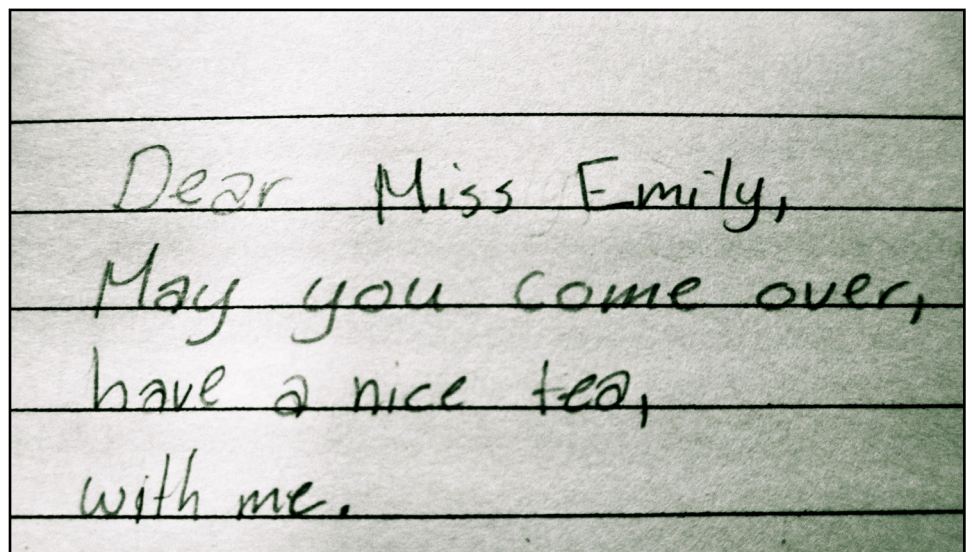 Dear Miss Emily,
May you come over,
have a nice tea,
with me.